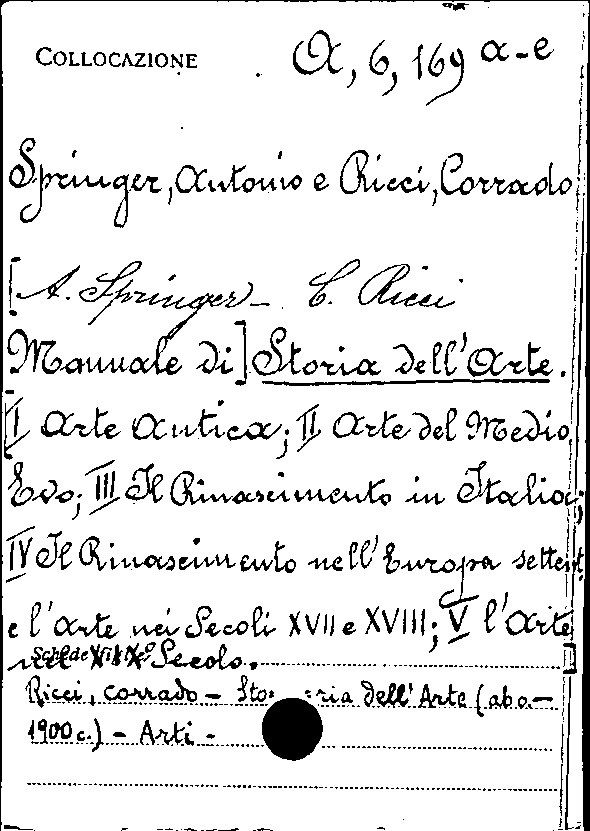 COLLOCAZIONE
A, 6, 169 a-e
Springer, Antonio e Ricci, Corrado
[A. Springer - C. Ricci
Manuale di] Storia dell'Arte.
[I Arte Antica; II Arte del Medio
Evo; III Il Rinascimento in Italia;
IV Il Rinascimento nell'Europa settent
e l'Arte nei Secoli XVII e XVIII; V l'Arte
nel XIX° Secolo.]
Ricci, Corrado - dell'Arte (ab o.-
1900 c.) - Arti -